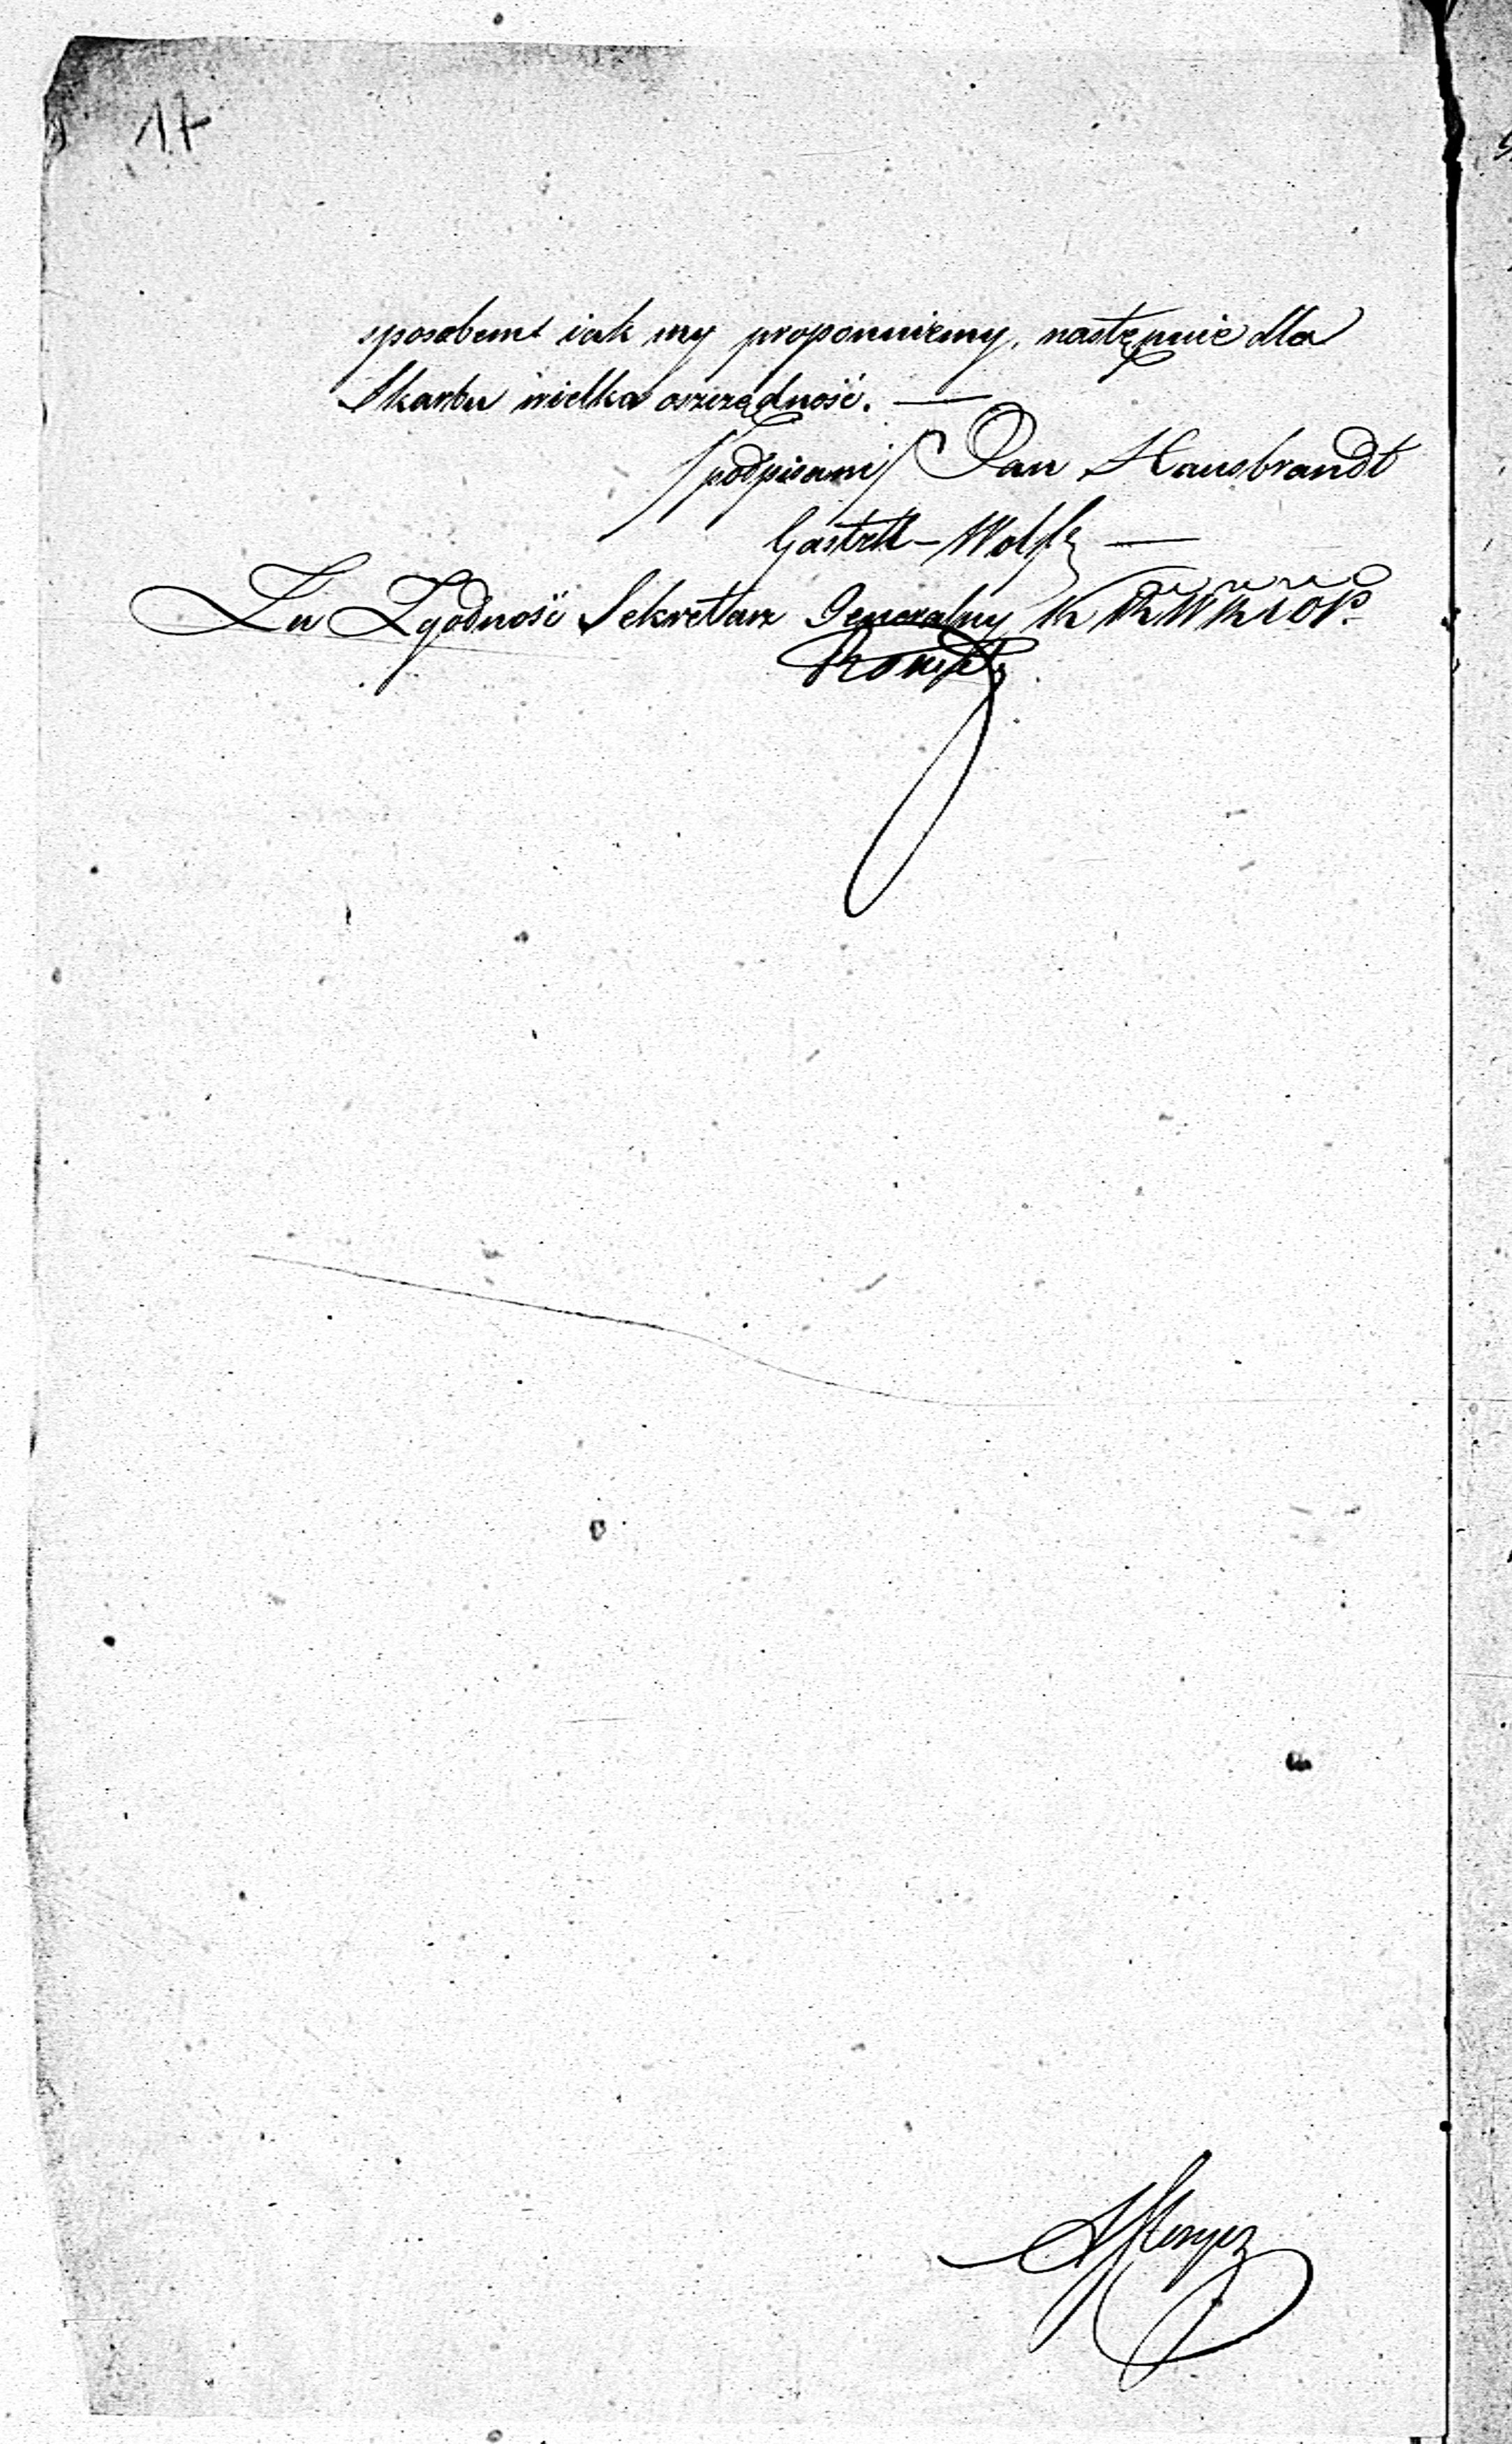 17
sposobem iak my proponuiemy, nastąpnie dla
Skarbu wielka oszczędność. —
/podpisani/ Dan Hausbrandt
Gastell - Wolff —
Za Zgodność Sekretarz Generalny K R W R i O P.